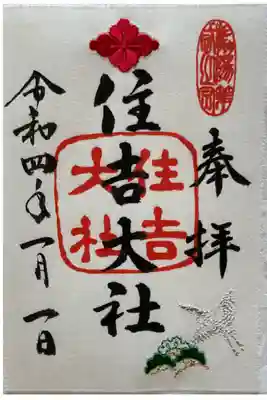 奉拝
住吉大社
住吉
大社
令和四年一月一日